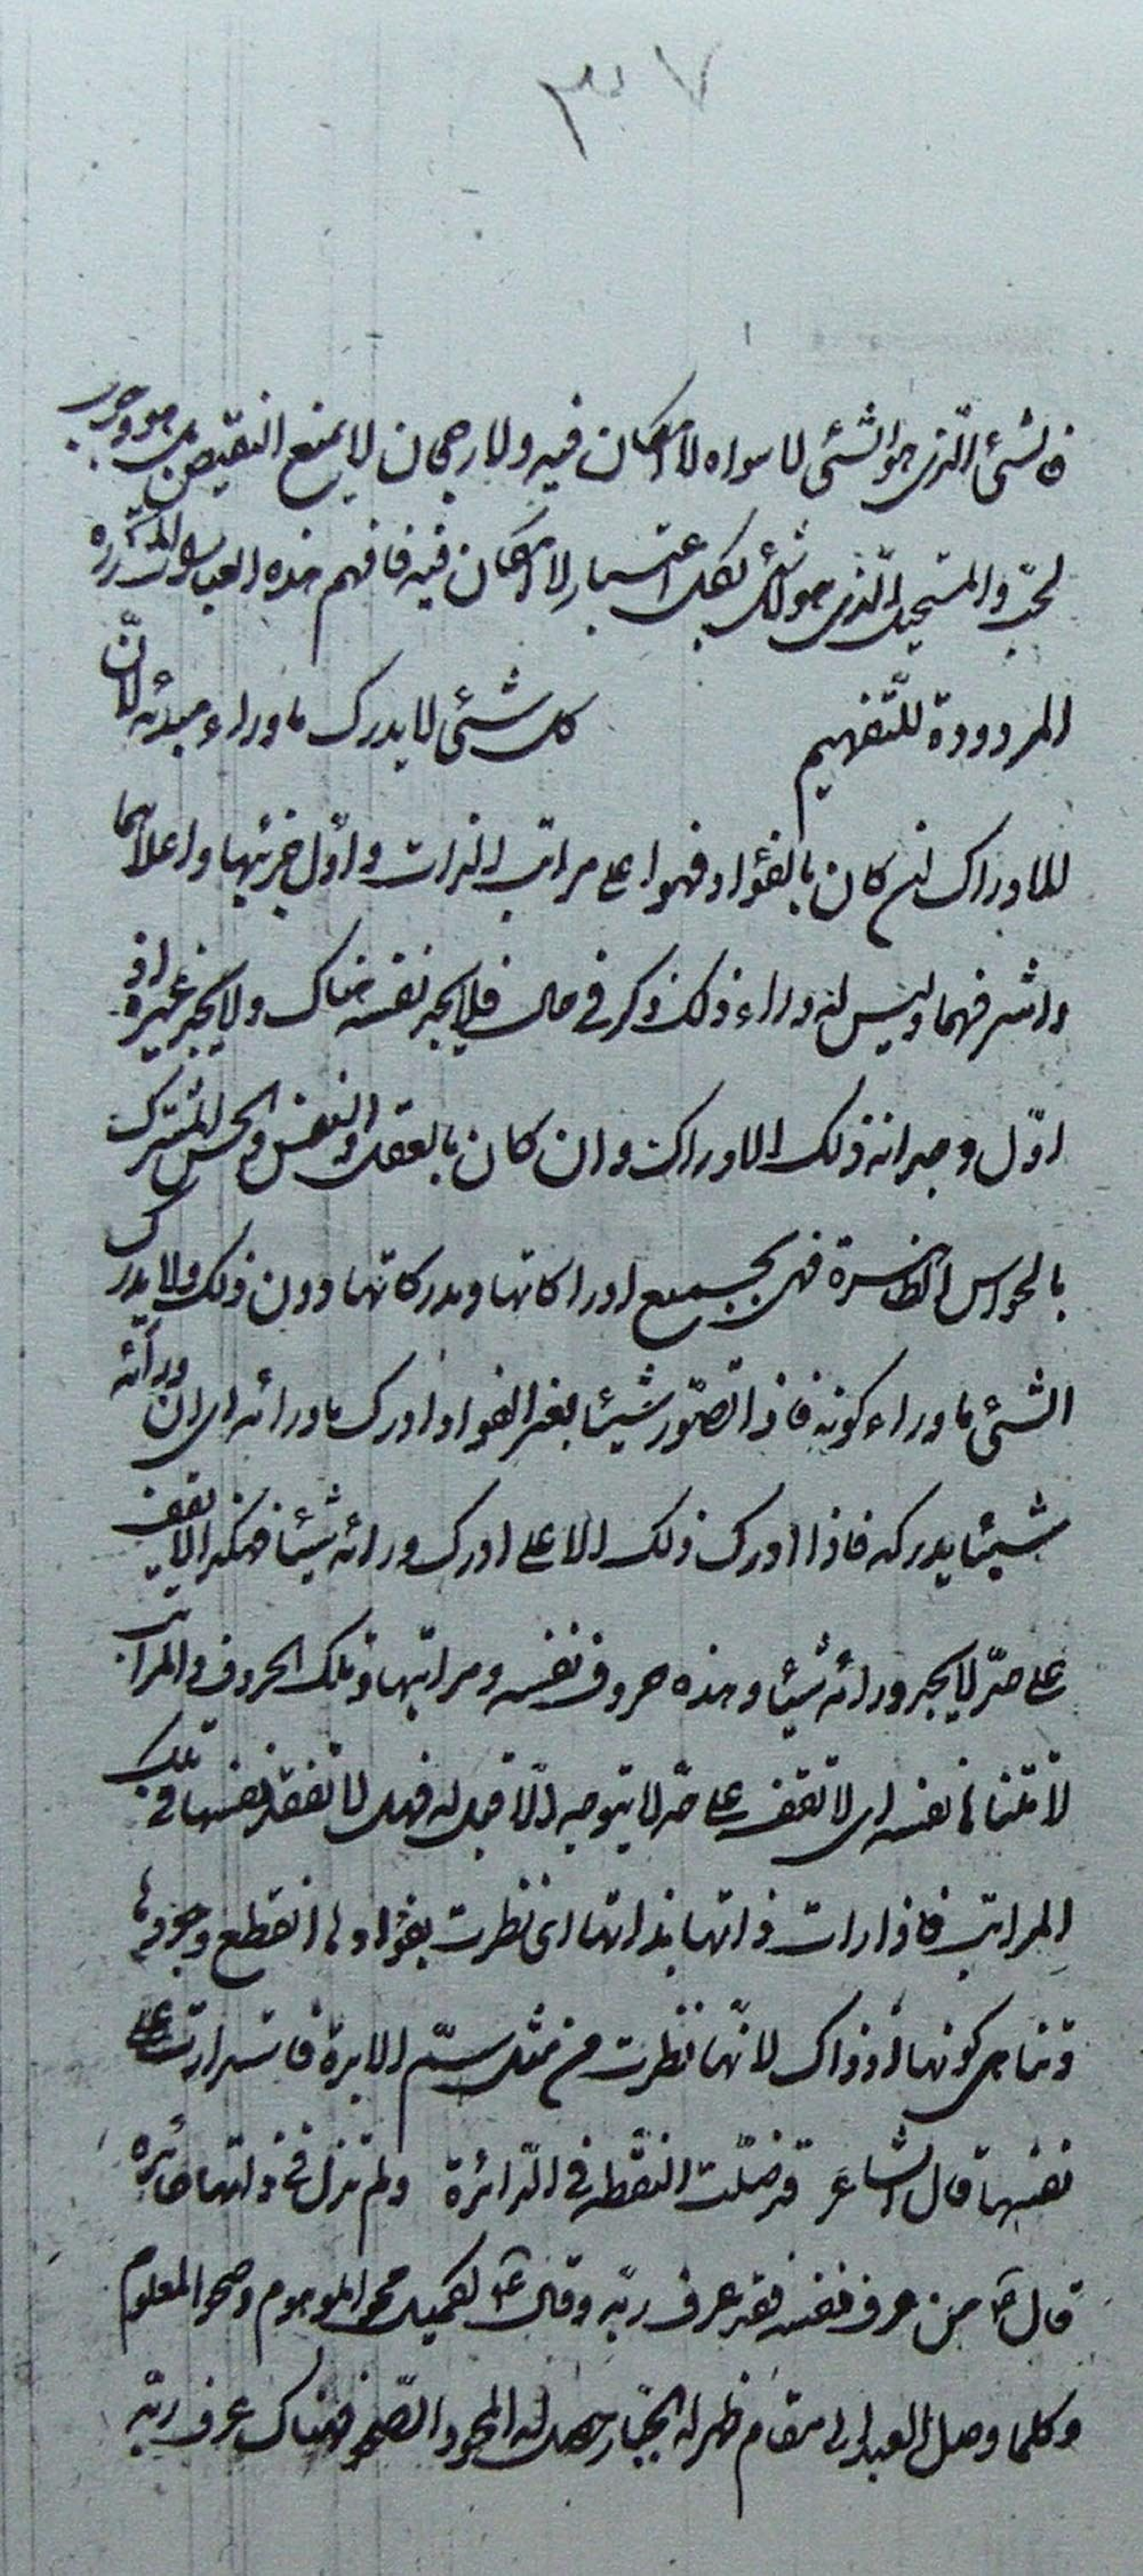 ٣٧
فالشئ الّذى هو الشئ لا سواه لا امكان فيه ولا رجحان لا يمنع النقيض هو وجوب
لحقّ والمستحيل الّذى هو لا شئ بكل اعتبار لا امكان فيه فافهم هذه العبارات المكرّره
المردودة للتّفهيم كل شئى لا يدرك ما وراء مبدئه لانّ
للادراك ان كان بالفؤاد فهو اعلى مراتب الذات واوّل جزئيها واعلاهما
واشرفهما وليس له وراء ذلك ذكر فى حال فلا يجد نفسه هناك ولا يجد غيره اذ
اوّل وجدانه ذلك الادراك وان كان بالعقل والنفس والحس المشترك
بالحواس الظاهرة فهى بجميع ادراكاتها ومدركاتها دون ذلك ولا يدرك
الشئى ما وراء كونه فاذا تصوّر شيئا بغير الفواد ادرك ما ورائه اى ان ورائه
شيئا يدركه فاذا ادرك ذلك الاعلى ادرك ورائه شيئا فمكثر الا يقف
على حدّ لا يجد ورائه شيئا وهذه حروف نفسه ومراتبها وتلك الحروف والمراتب
لا تتناهى نفسه اى لا تقف على حدّ لا يتوجه الّا قبله فهى لا تفقد نفسها فى تلك
المراتب فاذا رات ذاتها بذاتها اى نظرت بفؤادها انقطع وجودها
وتناهى كونها اذ ذاك لانّها نظرت من مثل سمّ الابرة فاستدارت على
نفسها قال الشاعر قد ضلّت النقطه فى الدّائرة ولم تزل فى ذاتها حائره
قال ص من عرف نفسه فقد عرف ربّه وقال ع لكميل محو الموهوم وصحو المعلوم
وكلما وصل العبد الى مقام ظهر له الجبّار حصل له المحو والصّحو فهناك عرف ربّه